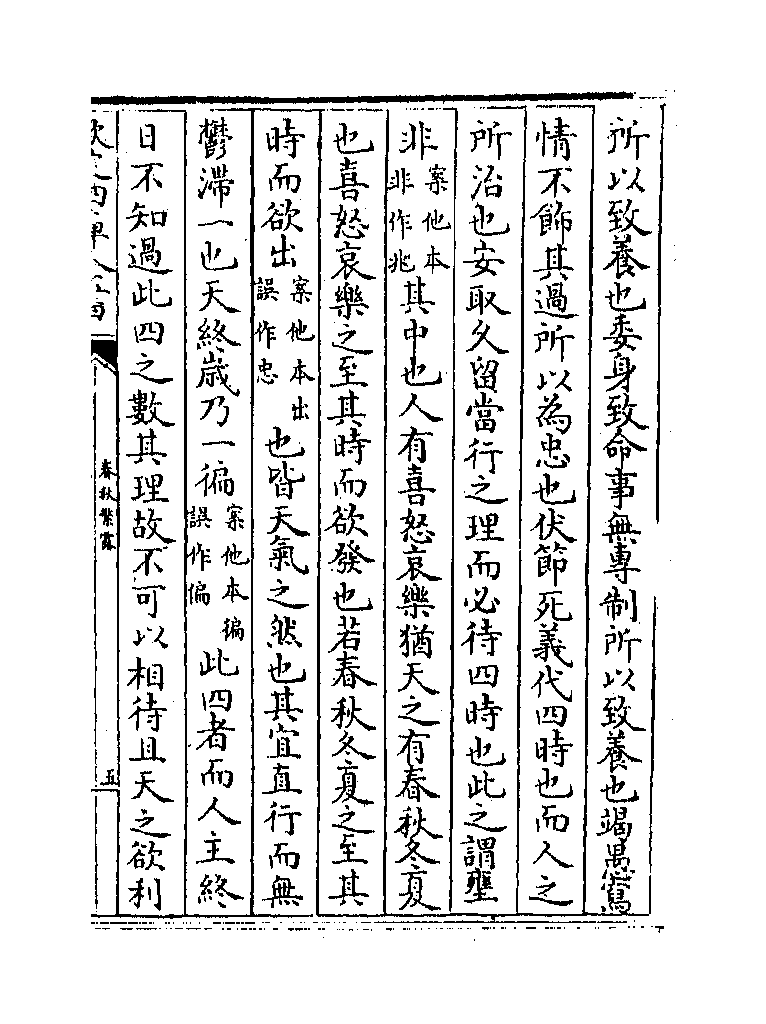 所以致養也委身致命事無專制所以致養也竭愚寫
情不飾其過所以為忠也伏節死義代四時也而人之
所治也安取久留當行之理而必待四時也此之謂壅
非案他本非作兆其中也人有喜怒哀樂猶天之有春秋冬夏
也喜怒哀樂之至其時而欲發也若春秋冬夏之至其
時而欲出案他本出誤作忠也皆天氣之然也其宜直行而無
鬱滯一也天終歲乃一徧案他本徧誤作偏此四者而人主終
日不知過此四之數其理故不可以相待且天之欲利
欽定四庫全書
春秋繁露
五